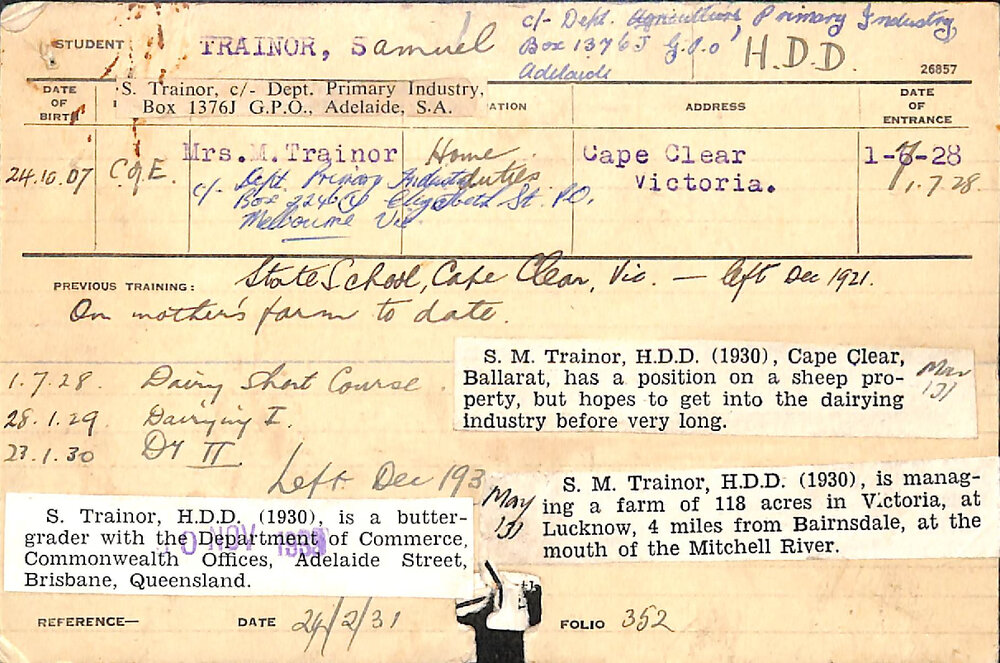 STUDENT TRAINOR, Samuel
c/- Dept. Agriculture, Primary Industry
Box 1376J G.P.O
Adelaide
H.D.D.
26857
DATE OF BIRTH
S. Trainor, c/- Dept. Primary Industry,
Box 1376J G.P.O., Adelaide, S.A.
ATION
ADDRESS
DATE OF ENTRANCE
24.10.07
C of E.
Mrs. M. Trainor
c/- Dept Primary Industry
Box 2246 Elizabeth St. P.O.
Melbourne Vic
Home duties
Cape Clear
Victoria.
1-6-28
1.7.28
PREVIOUS TRAINING: State School, Cape Clear, Vic. — left Dec 1921.
On mother's farm to date.
1.7.28. Dairy Short Course.
28.1.29 Dairying I.
23.1.30 Dy II
Left Dec 193
S. M. Trainor, H.D.D. (1930), Cape Clear,
Ballarat, has a position on a sheep pro-
perty, but hopes to get into the dairying
industry before very long.
Mar '31
May '31
S. M. Trainor, H.D.D. (1930), is manag-
ing a farm of 118 acres in Victoria, at
Lucknow, 4 miles from Bairnsdale, at the
mouth of the Mitchell River.
S. Trainor, H.D.D. (1930), is a butter-
grader with the Department of Commerce,
Commonwealth Offices, Adelaide Street,
Brisbane, Queensland.
NOV
REFERENCE—
DATE 24/2/31
FOLIO 352